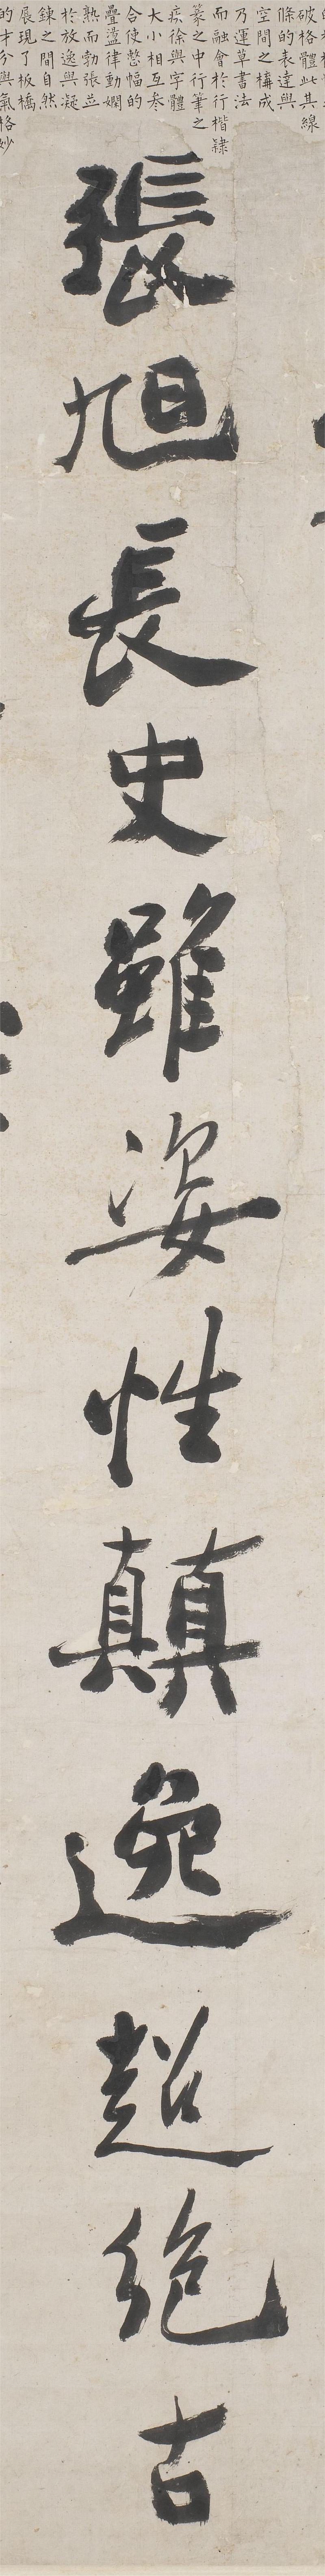 破格體此其線
條的表達與
空間之構成
乃運草書法
而融會於行楷隸
篆之中行筆之
疾徐與字體
大小相互參
合使整幅的
疊盪律動嫻
熟而勃張並
於放逸與凝
鍊之間自然
展現了板橋
的才分與氣格妙
張旭長史雖姿性顛逸超絕古